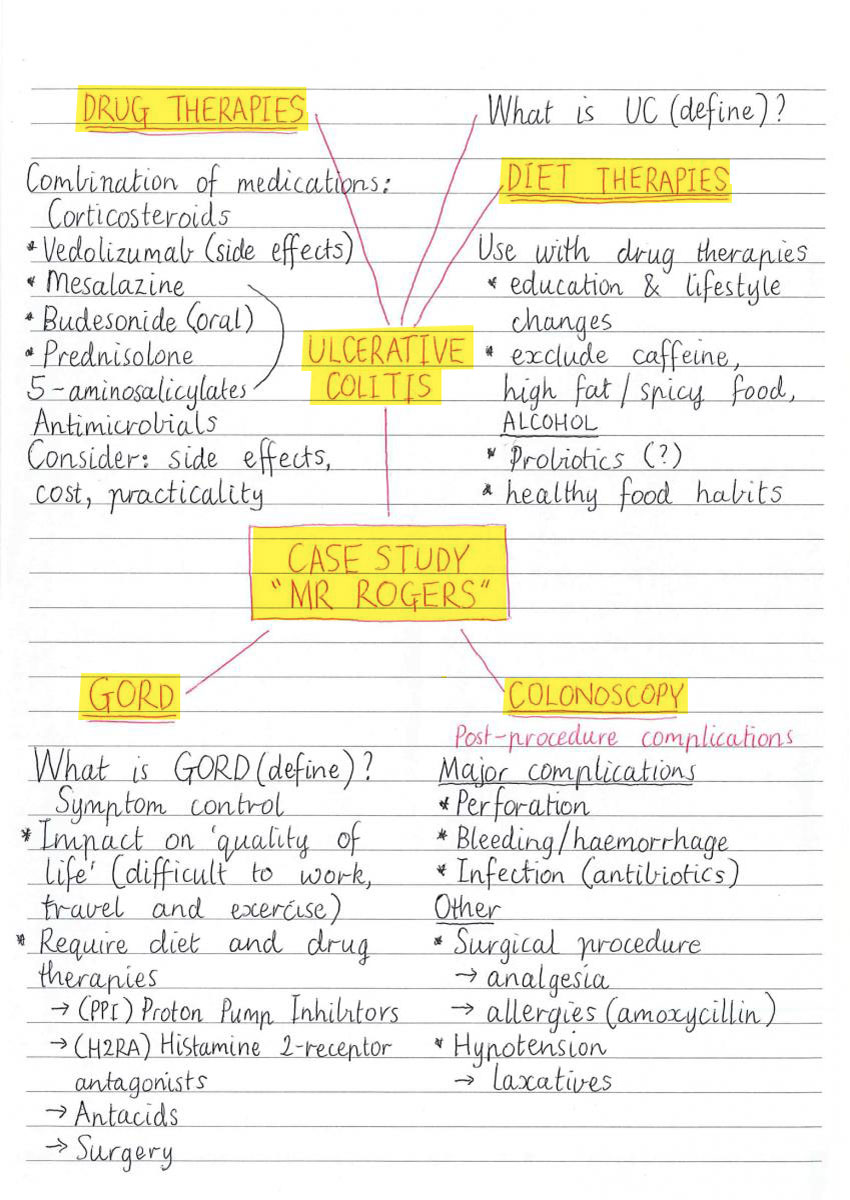 DRUG THERAPIES
Combination of medications:
Corticosteroids
* Vedolizumab (side effects)
* Mesalazine
* Budesonide (oral)
* Prednisolone
5-aminosalicylates
Antimicrobials
Consider: side effects,
cost, practicality
What is UC (define)?
DIET THERAPIES
Use with drug therapies
* education & lifestyle
changes
* exclude caffeine,
high fat / spicy food,
ALCOHOL
* Probiotics (?)
* healthy food habits
ULCERATIVE
COLITIS
CASE STUDY
"MR ROGERS"
GORD
What is GORD (define)?
Symptom control
* Impact on 'quality of
life' (difficult to work,
travel and exercise)
* Require diet and drug
therapies
→ (PPI) Proton Pump Inhibitors
→ (H2RA) Histamine 2-receptor
antagonists
→ Antacids
→ Surgery
COLONOSCOPY
Post-procedure complications
Major complications
* Perforation
* Bleeding/haemorrhage
* Infection (antibiotics)
Other
* Surgical procedure
→ analgesia
→ allergies (amoxycillin)
* Hypotension
→ laxatives